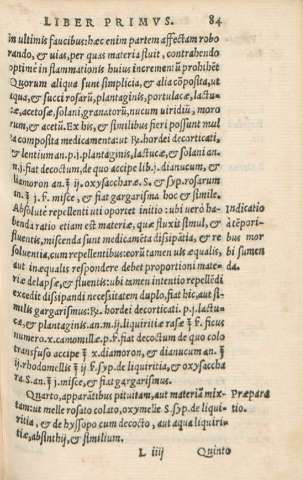 LIBER PRIMVS. 84
in ultimis faucibus: hæc enim partem affectam robo
rando, & uias, per quas materia fluit, contrahendo
optime in flammationis huius incrementũ prohibẽt
Quorum aliqua sunt simplicia, & alia cõposita, ut
aqua, & succi rosarũ, plantaginis, portulacæ, lactu-
cæ, acetosæ, solani, granatorũ, nucum uiridiũ, moro
rum, & acetũ. Ex his, & similibus fieri possunt mul
ta composita medicamenta: ut ℞. hordei decorticati,
& lentium an. p. j. plantaginis, lactucæ, & solani an.
m. j. fiat decoctum, de quo accipe lib. j. dianucum, &
diamoron an. ℥ ij. oxysaccharæ. S. & syp. rosarum
an. ℥ j. f. misce, & fiat gargarisma hoc & simile.
Absolutè repellenti uti oportet initio: ubi uerò ha- Indicatio
benda ratio etiam est materiæ, quæ fluxit simul, & à tẽpori-
fluentis, miscenda sunt medicamẽta dissipãtia, & re bus mor
soluentia, cum repellentibus: eorũ tamen uis æqualis, bi sumen
aut inæqualis respondere debet proportioni mate- da.
riæ delapsæ, & fluentis: ubi tamen intentio repellẽdi
excedit dissipandi necessitatem duplo, fiat hic, aut si-
milis gargarismus: ℞. hordei decorticati. p. j. lactu-
cæ, & plantaginis. an. m. ij. liquiritiæ rasæ ℥ f. ficus
numero. x. camomillæ. p. f. fiat decoctum de quo colo
transfuso accipe ℥ x. diamoron, & dianucum an. ℥
ij. rhodomellis ℥ ij f. syp. de liquiritia, & oxysaccha
ra S. an. ℥ j. misce, & fiat gargarismus.
Quarto, apparãtibus pituitam, aut materiã mix- Præpara
tam: ut melle rosato colato, oxymelle S. syp. de liqui- tio.
ritia, & de hyssopo cum decocto, aut aqua liquiri-
tiæ, absinthij, & similium.
L iiij Quinto